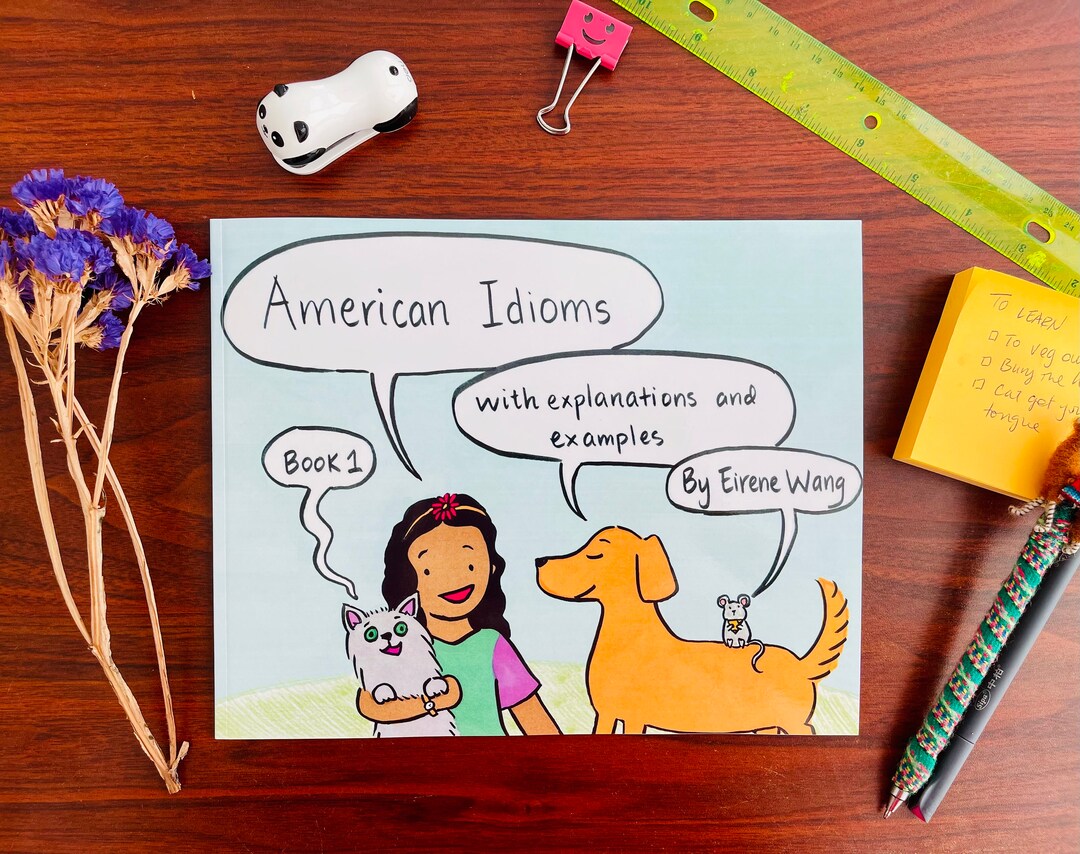 American Idioms
with explanations and
examples
Book 1
By Eirene Wang
TO LEARN
To veg
Bury the
Cat got
tongue